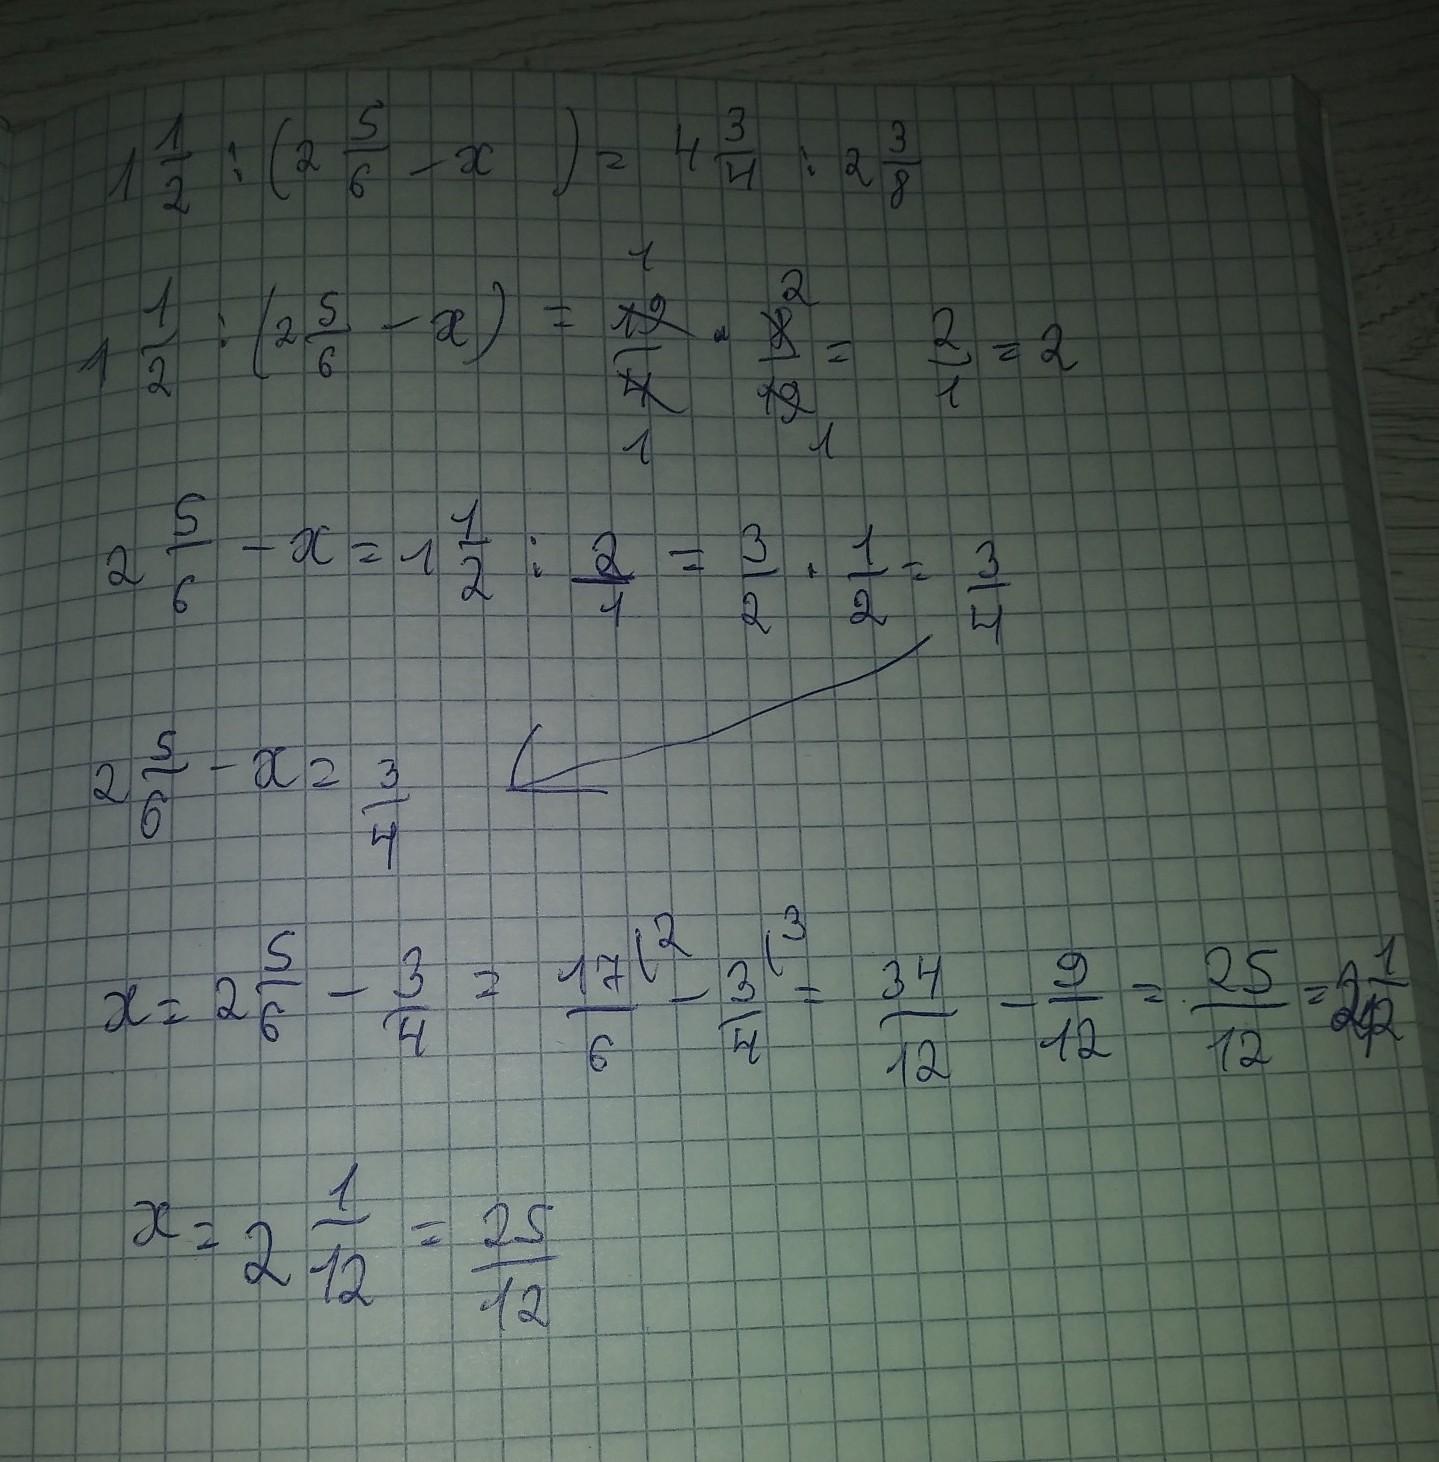 1 1/2 : (2 5/6 - x) = 4 3/4 : 2 3/8
1 1/2 : (2 5/6 - x) = 19/4 · 8/19 = 2/1 = 2
2 5/6 - x = 1 1/2 : 2/1 = 3/2 · 1/2 = 3/4
2 5/6 - x = 3/4
x = 2 5/6 - 3/4 = 17/6 (2 - 3/4 (3 = 34/12 - 9/12 = 25/12 = 2 1/12
x = 2 1/12 = 25/12